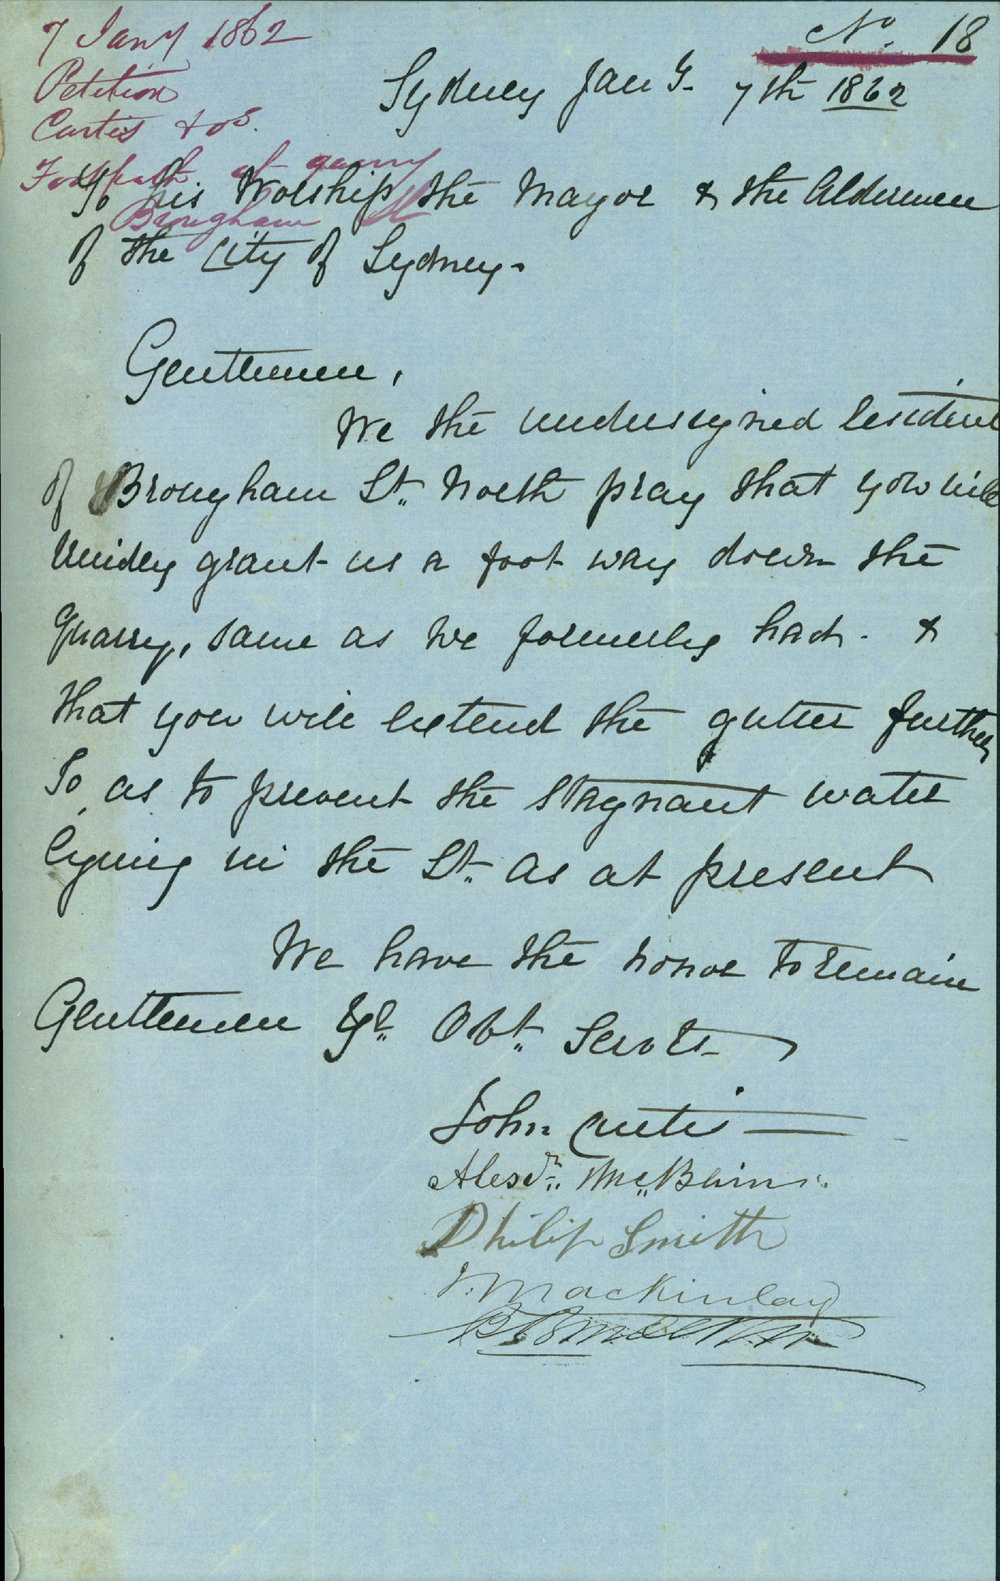 7 Jany 1862
Petition
Curtis & ors.
Footpath at quarry
Brougham St
No. 18
Sydney Jany. 7th 1862
To His Worship the Mayor & the Aldermen
of the City of Sydney.
Gentlemen,
We the undersigned resident
of Brougham St. North pray that you will
kindly grant us a foot way down the
Quarry, same as we formerly had. &
that you will extend the gutter further
So as to prevent the stagnant water
lying in the St. as at present
We have the honor to remain
Gentlemen Yr. Obt. Servts
John Curtis
Alexdr. McBain
Philip Smith
J. Mackinlay